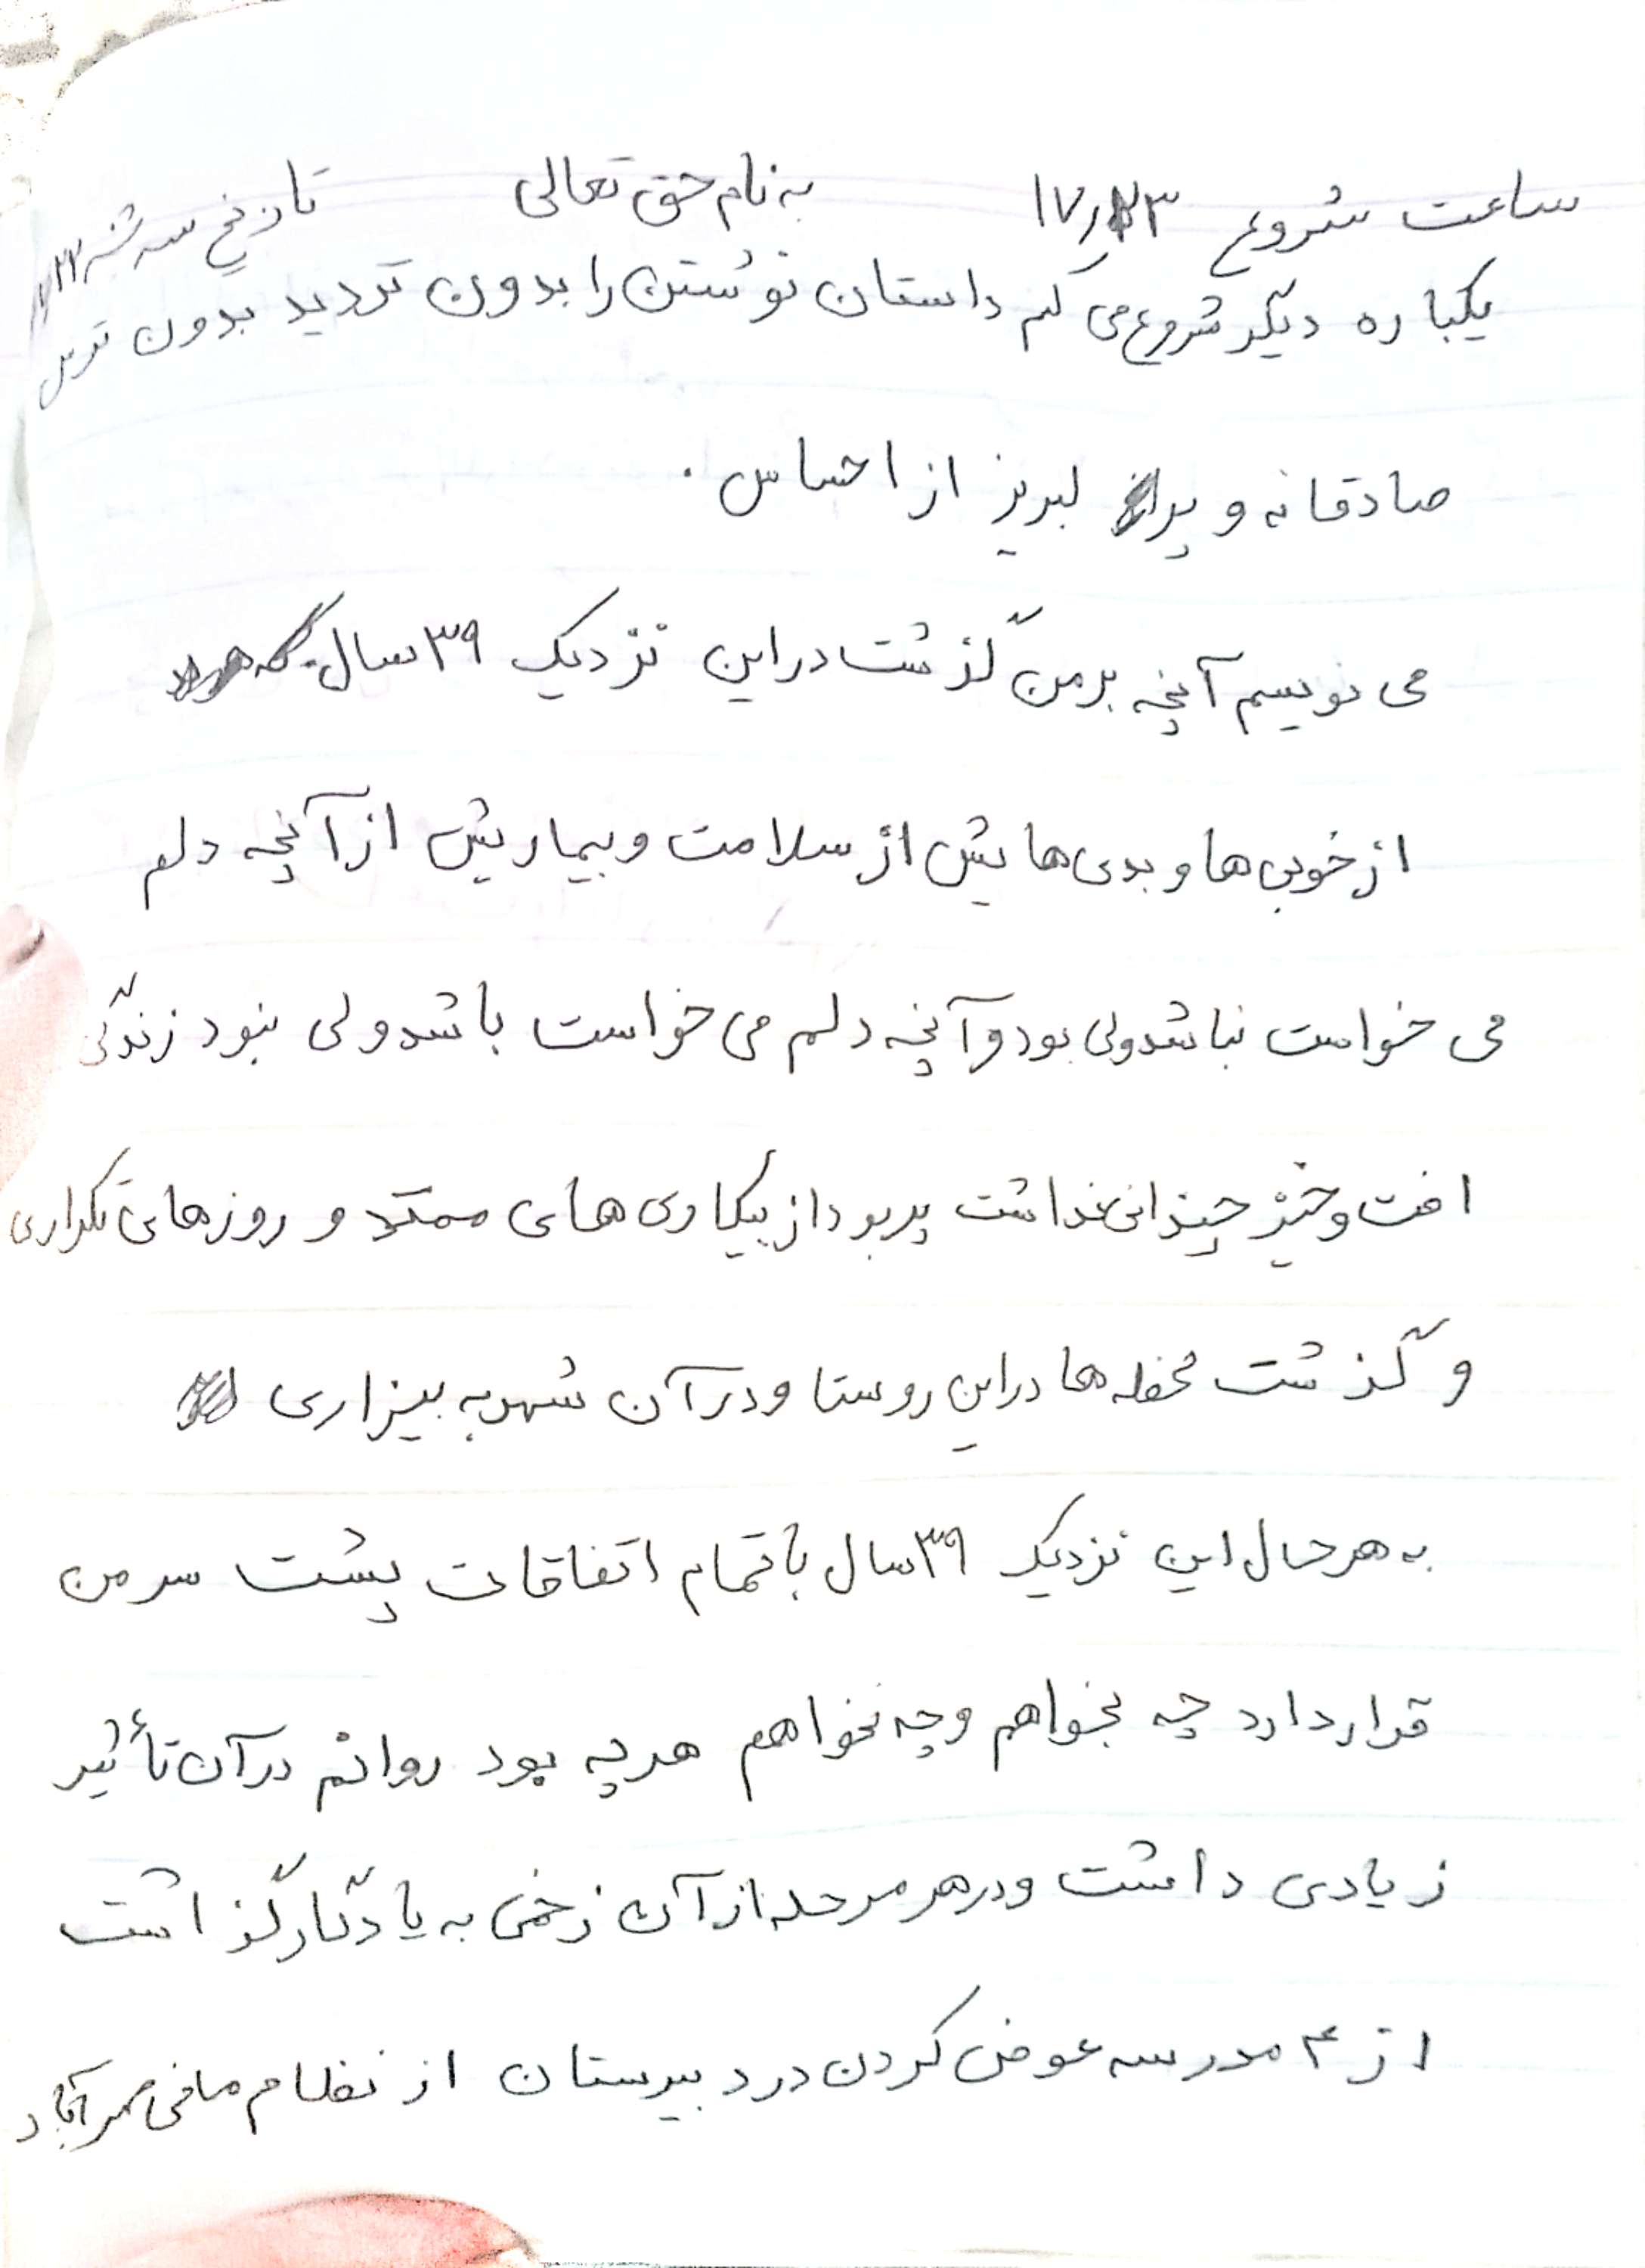 ساعت شروع ۱۷٫۲۳ به نام حق تعالی تاریخ سه شنبه
یکباره دیگر شروع می کنم داستان نوشتن را بدون تردید بدون ترس
صادقانه و لبریز از احساس.
می نویسم آنچه بر من گذشت در این نزدیک ۳۹ سال.
از خوبی ها و بدی هایش از سلامت و بیماریش از آنچه دلم
می خواست نباشد ولی بود و آنچه دلم می خواست باشد ولی نبود زندگی
افت و خیز چندانی نداشت پر بود از بیکاری های ممتد و روزهای تکراری
و گذشت لحظه ها در این روستا و در آن شهر به بیزاری
به هر حال این نزدیک ۳۹ سال با تمام اتفاقات پشت سر من
قرار دارد چه بخواهم و چه نخواهم هر چه بود روانم در آن تأثیر
زیادی داشت و در هر مرحله از آن زخمی به یادگار گذاشت
از ۴ مدرسه عوض کردن در دبیرستان از نظام مافی